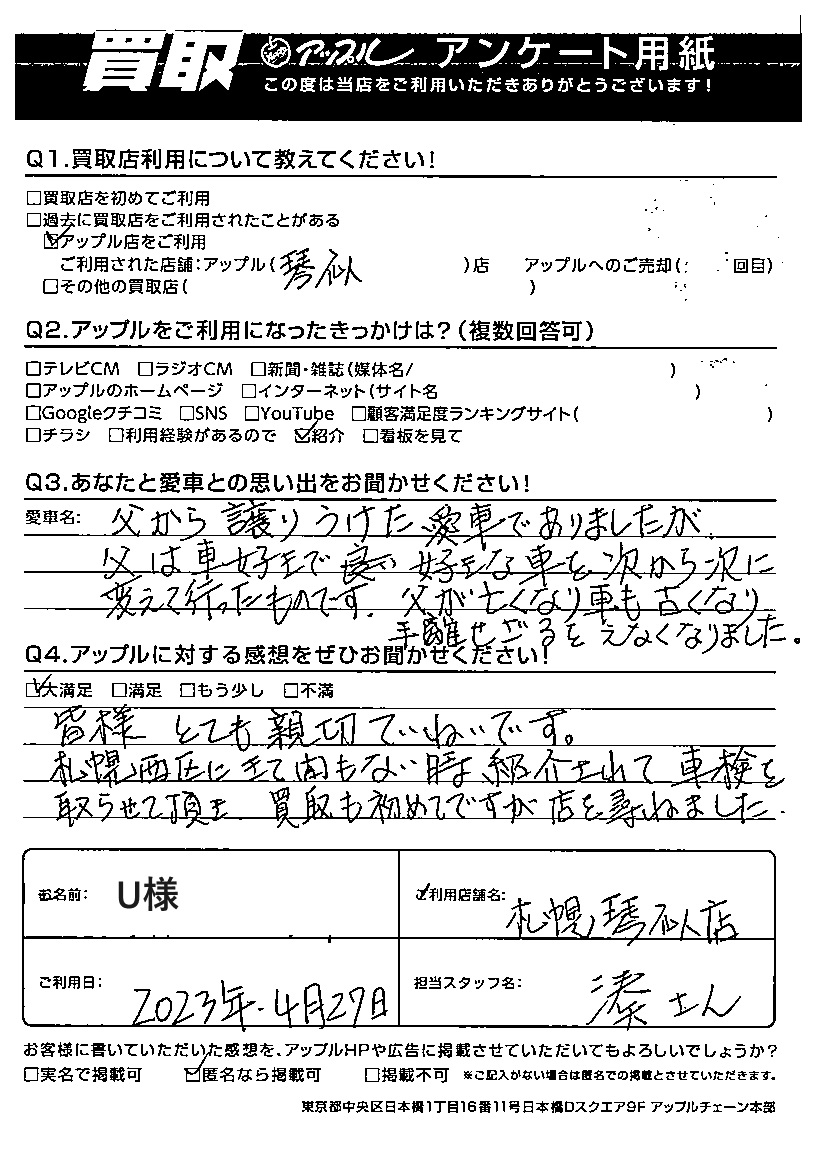 買取 アップル アンケート用紙
この度は当店をご利用いただきありがとうございます！
Q1.買取店利用について教えてください！
□買取店を初めてご利用
□過去に買取店をご利用されたことがある
☑アップル店をご利用
ご利用された店舗：アップル（琴似）店 アップルへのご売却（ 回目）
□その他の買取店（ ）
Q2.アップルをご利用になったきっかけは？（複数回答可）
□テレビCM □ラジオCM □新聞・雑誌（媒体名/ ）
□アップルのホームページ □インターネット（サイト名 ）
□Googleクチコミ □SNS □YouTube □顧客満足度ランキングサイト（ ）
□チラシ □利用経験があるので ☑紹介 □看板を見て
Q3.あなたと愛車との思い出をお聞かせください！
愛車名： 父から譲りうけた愛車でありましたが
父は車好きで 好きな車を次から次に
変えて行ったものです. 父が亡くなり車も古くなり
手離せざるをえなくなりました.
Q4.アップルに対する感想をぜひお聞かせください！
☑大満足 □満足 □もう少し □不満
皆様 とても親切ていねいです。
札幌西区にきて間もない時、紹介されて車検を
取らせて頂き 買取も初めてですが店を尋ねました.
お名前： U様
ご利用店舗名： 札幌琴似店
ご利用日： 2023年.4月27日
担当スタッフ名： 湊さん
お客様に書いていただいた感想を、アップルHPや広告に掲載させていただいてもよろしいでしょうか？
□実名で掲載可 ☑匿名なら掲載可 □掲載不可 ※ご記入がない場合は匿名での掲載とさせていただきます。
東京都中央区日本橋1丁目16番11号日本橋Dスクエア9F アップルチェーン本部